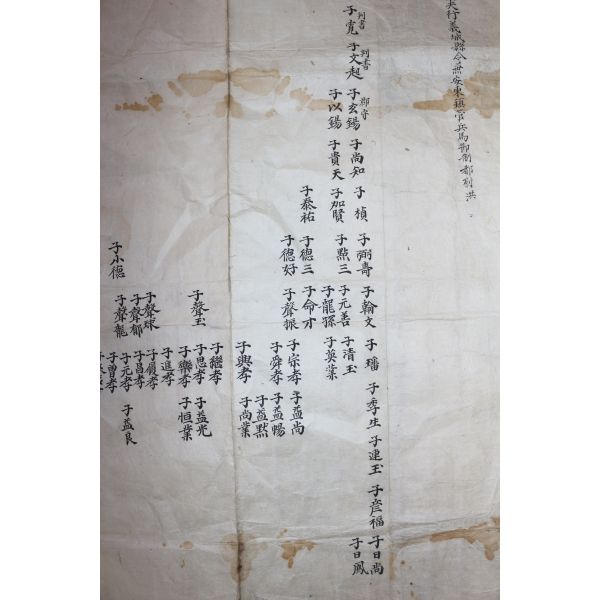 夫行義城縣令兼安東鎮管兵馬節制都尉洪
子寬 判書
子文起 判書
子玄錫 郡守
子以錫
子尚知
子貴天
子楨
子加賢
子泰祐
子弼壽
子點三
子德三
子德好
子小德
子翰文
子元善
子龍孫
子命才
子聲振
子聲玉
子聲球
子聲郁
子聲龍
子璠
子清玉
子英葉
子宗孝
子舜孝
子興孝
子繼孝
子思孝
子樂孝
子進孝
子順孝
子昌孝
子元孝
子曾孝
子季生
子益尚
子益暢
子益點
子尚業
子益光
子恒業
子益良
子連玉
子彦福
子日尚
子日鳳